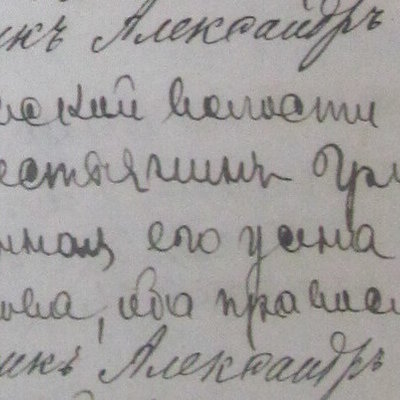 икъ Александръ
ской волости
естьянинъ Гри
его жена
ова, оба православ
икъ Александръ